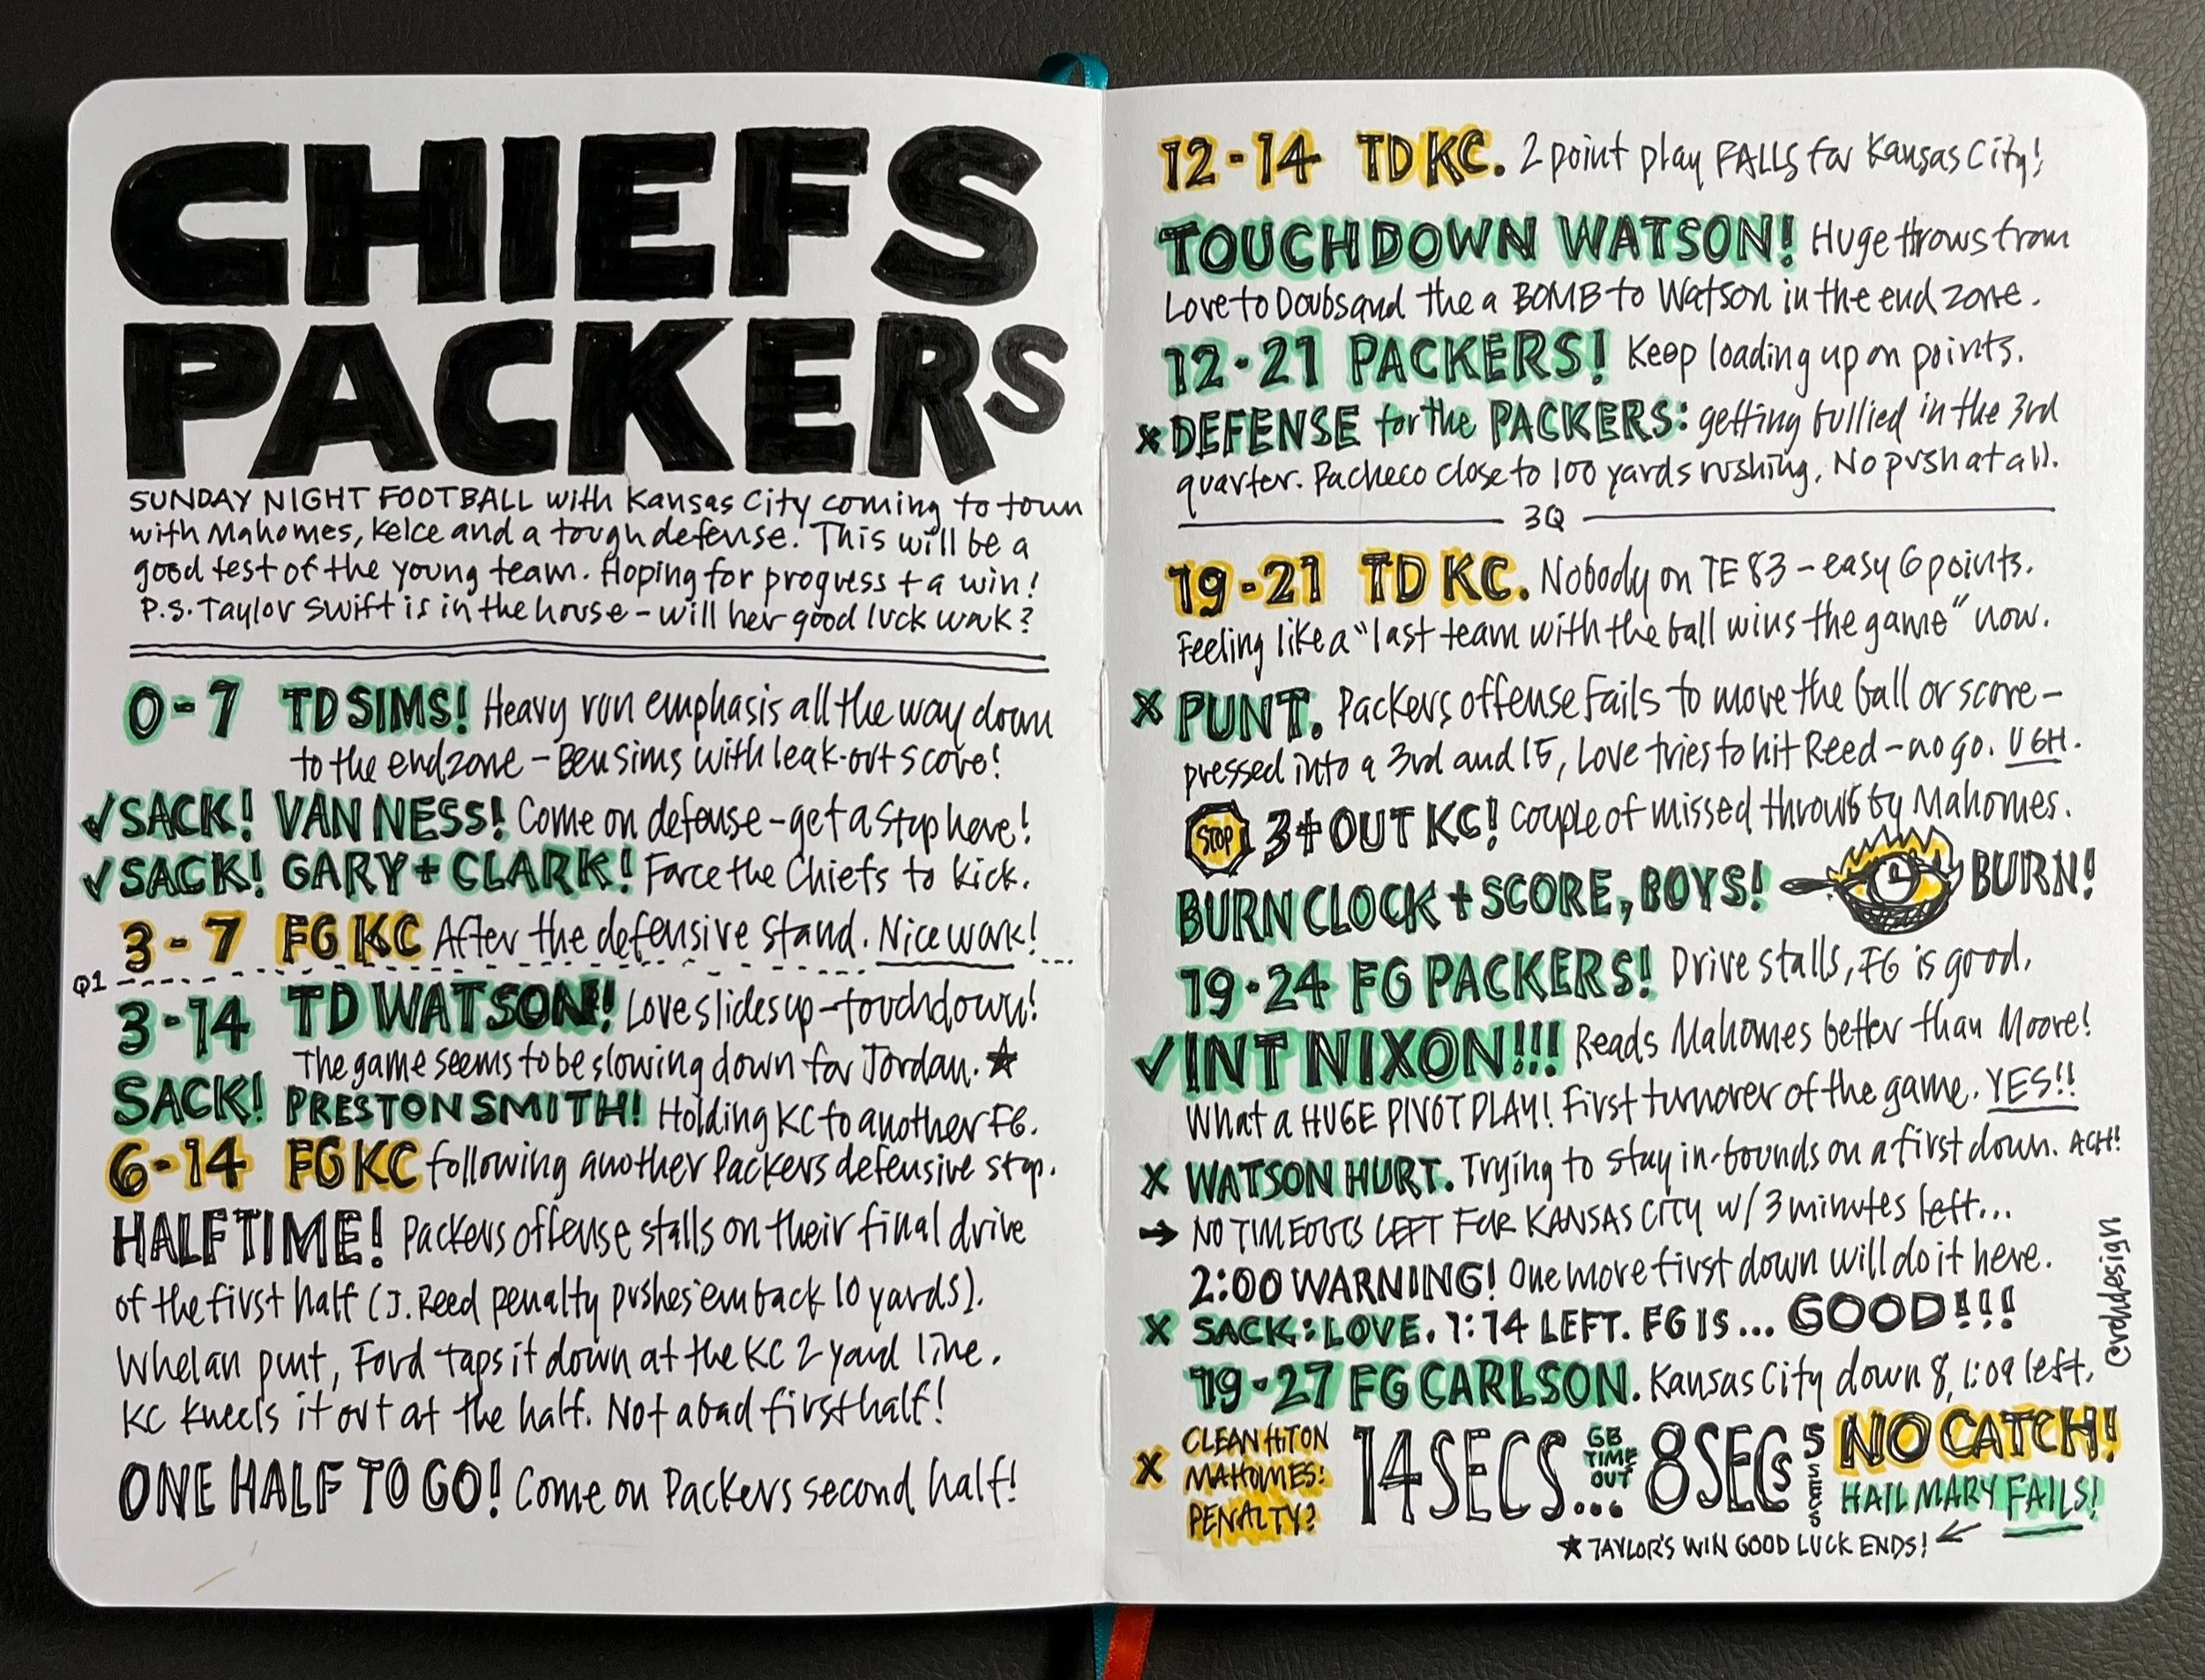 CHIEFS
PACKERS
SUNDAY NIGHT FOOTBALL with Kansas City coming to town
with Mahomes, Kelce and a tough defense. This will be a
good test of the young team. Hoping for progress + a win!
P.S. Taylor Swift is in the house – will her good luck work?
0-7 TD SIMS! Heavy run emphasis all the way down
to the endzone – Ben Sims with leak-out score!
✓ SACK! VAN NESS! Come on defense – get a stop here!
✓ SACK! GARY + CLARK! Force the Chiefs to kick.
3-7 FG KC After the defensive stand. Nice work!
Q1
3-14 TD WATSON! Love slides up – touchdown!
The game seems to be slowing down for Jordan. ★
SACK! PRESTON SMITH! Holding KC to another FG.
6-14 FG KC following another Packers defensive stop.
HALFTIME! Packers offense stalls on their final drive
of the first half (J. Reed penalty pushes 'em back 10 yards).
Whelan punt, Ford taps it down at the KC 2 yard line.
KC kneels it out at the half. Not a bad first half!
ONE HALF TO GO! Come on Packers second half!
12-14 TD KC. 2 point play FALLS for Kansas City!
TOUCHDOWN WATSON! Huge throws from
Love to Doubs and the a BOMB to Watson in the end zone.
12-21 PACKERS! Keep loading up on points.
x DEFENSE for the PACKERS: getting bullied in the 3rd
quarter. Pacheco close to 100 yards rushing. No push at all.
3Q
19-21 TD KC. Nobody on TE 83 – easy 6 points.
Feeling like a "last team with the ball wins the game" now.
x PUNT. Packers offense fails to move the ball or score –
pressed into a 3rd and 15, Love tries to hit Reed – no go. UGH.
STOP 3 + OUT KC! Couple of missed throws by Mahomes.
BURN CLOCK + SCORE, BOYS! BURN!
19-24 FG PACKERS! Drive stalls, FG is good.
✓ INT NIXON!!! Reads Mahomes better than Moore!
What a HUGE PIVOT PLAY! First turnover of the game. YES!!
x WATSON HURT. Trying to stay in-bounds on a first down. ACH!
→ NO TIMEOUTS LEFT FOR KANSAS CITY w/ 3 minutes left...
2:00 WARNING! One more first down will do it here.
x SACK: LOVE. 1:14 LEFT. FG IS... GOOD!!!
19-27 FG CARLSON. Kansas City down 8, 1:09 left.
x CLEAN HIT ON
MAHOMES:
PENALTY?
14 SECS...
GB
TIME
OUT
8 SECS
5 SECS
NO CATCH!
HAIL MARY FAILS!
★ TAYLOR'S WIN GOOD LUCK ENDS!
@rohdesign